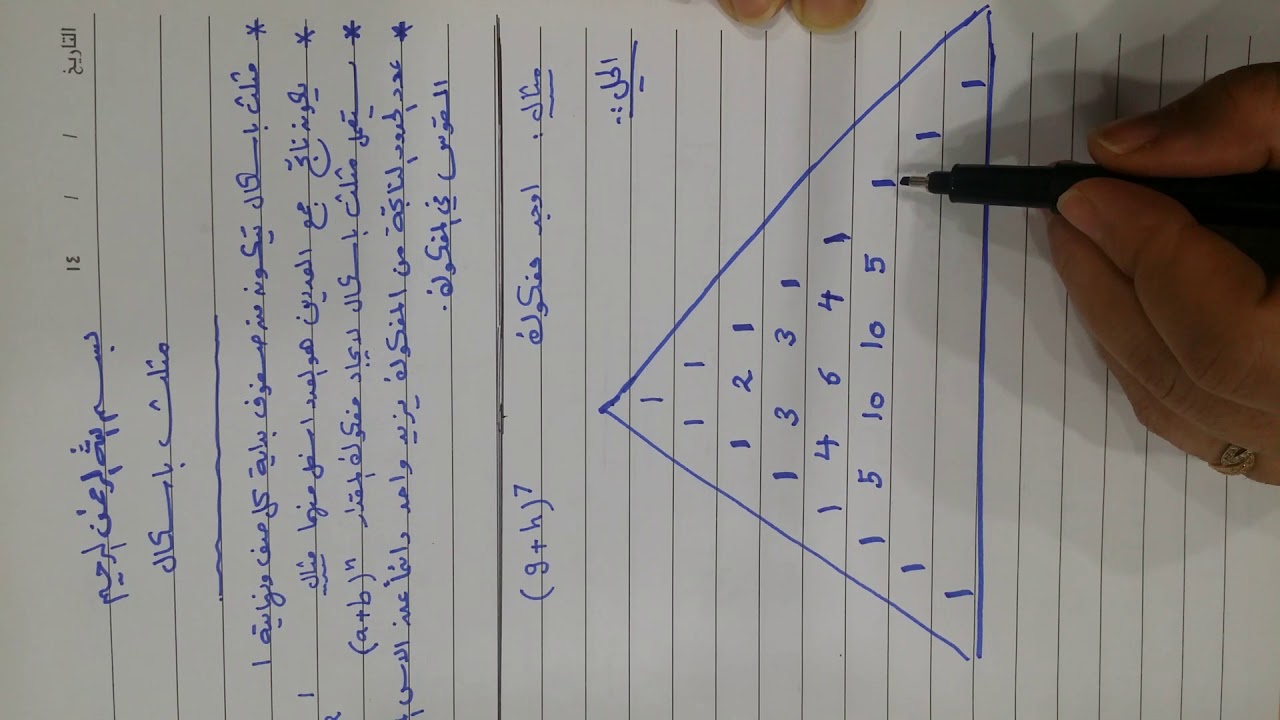 التاريخ / / ١٤
بسم الله الرحمن الرحيم
مثلث باسكال
* مثلث باسكال يتكون من صفوف بداية كل صف ونهايته 1
* يكون ناتج جمع العددين هو العدد اسفل منها مثال 1
2
* يستعمل مثلث باسكال لايجاد مفكوك المقدار (a+b)ⁿ
* عدد الحدود الناتجة من المفكوك يزيد واحد دائماً عن الاس
القوس في المفكوك.
مثال: اوجد مفكوك (g+h)⁷
الحل:-
1
1 1
1 2 1
1 3 3 1
1 4 6 4 1
1 5 10 10 5 1
1 1
1 1